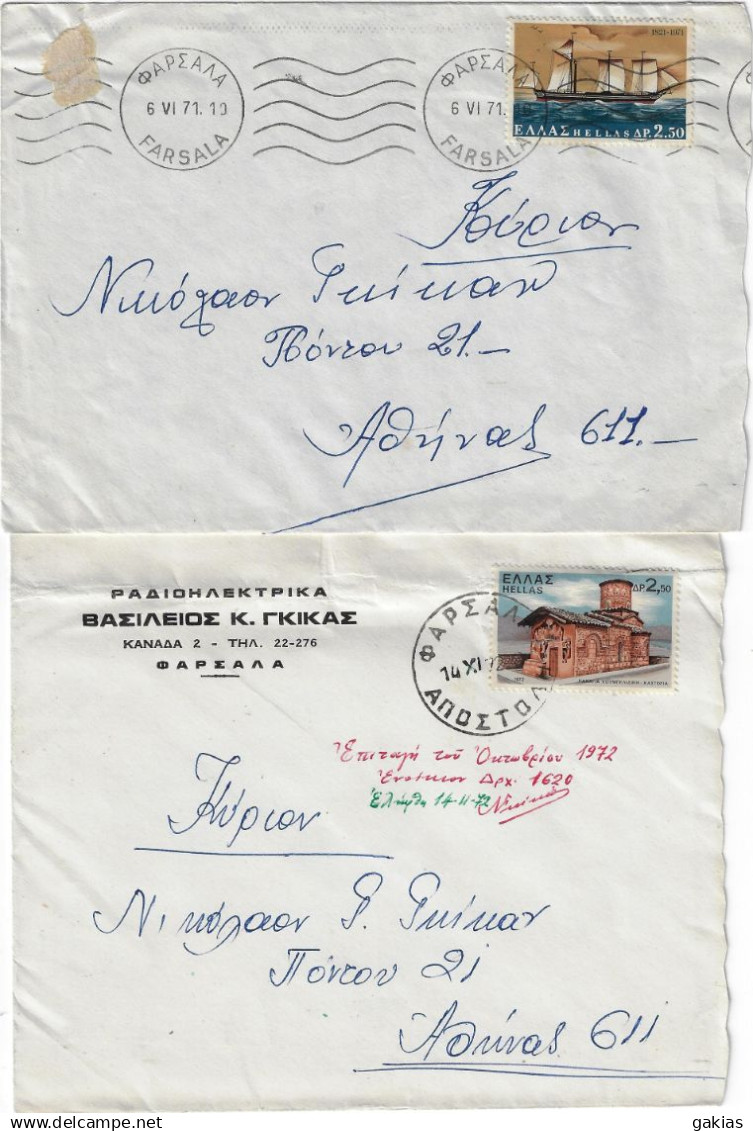 ΦΑΡΣΑΛΑ
6 VI 71. 19
FARSALA
ΦΑΡΣΑΛΑ
6 VI 71. 19
FARSALA
1821-1971
ΕΛΛΑΣ HELLAS ΔΡ. 2.50
Κύριον
Νικόλαον Γκίκαν
Πόντου 21.-
Αθήνας 611.-
ΡΑΔΙΟΗΛΕΚΤΡΙΚΑ
ΒΑΣΙΛΕΙΟΣ Κ. ΓΚΙΚΑΣ
ΚΑΝΑΔΑ 2 - ΤΗΛ. 22-276
ΦΑΡΣΑΛΑ
ΕΛΛΑΣ
HELLAS
ΔΡ 2,50
ΚΑΣΤΟΡΙΑ
ΦΑΡΣΑΛ
14 XI 72
ΑΠΟΣΤΟΛ
Ἐπιταγή τοῦ Ὀκτωβρίου 1972
Ἐνοίκιον Δρχ. 1620
Ἐλήφθη 14-11-72
Κύριον
Νικόλαον Γ. Γκίκαν
Πόντου 21
Αθήνας 611
gakias